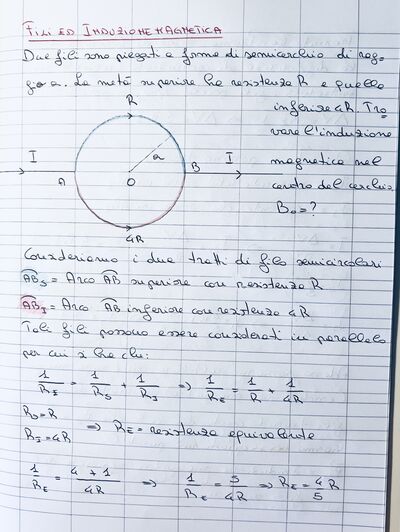 FILI ED INDUZIONE MAGNETICA
Due fili sono piegati a forma di semicerchio di rag-
gio a. La metà superiore ha resistenza R e quella
R
inferiore 4R. Tro
vare l'induzione
a
I
B
I
magnetica nel
A
O
centro del cerchio
B₀ = ?
4R
Consideriamo i due tratti di filo semicircolari
AB_S = Arco AB superiore con resistenza R
AB_I = Arco AB inferiore con resistenza 4R
Tali fili possono essere considerati in parallelo
per cui si ha che:
1/R_E = 1/R_S + 1/R_I ⇒ 1/R_E = 1/R + 1/4R
R_S = R
R_I = 4R ⇒ R_E = resistenza equivalente
1/R_E = 4 + 1/4R ⇒ 1/R_E = 5/4R ⇒ R_E = 4/5 R